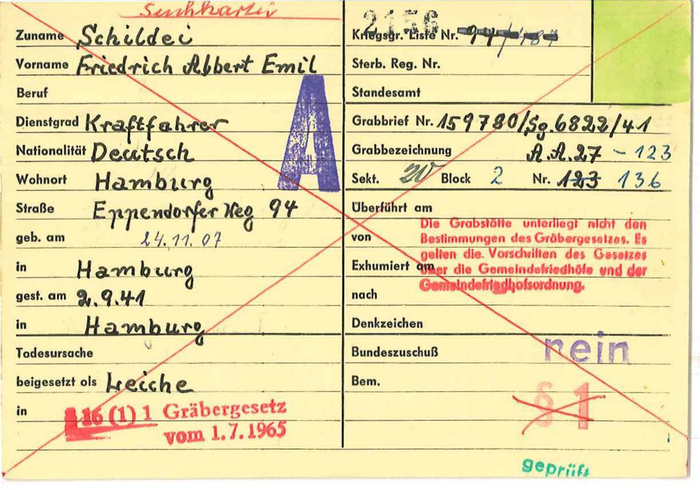 Suchkartei
Zuname Schildei
Vorname Friedrich Albert Emil
Beruf
Dienstgrad Kraftfahrer
Nationalität Deutsch
Wohnort Hamburg
Straße Eppendorfer Weg 94
geb. am 24.11.07
in Hamburg
gest. am 2.9.41
in Hamburg
Todesursache
beigesetzt als Leiche
in
§ 16 (1) 1 Gräbergesetz
vom 1.7.1965
A
2156
Kriegsgr. Liste Nr.
Sterb. Reg. Nr.
Standesamt
Grabbrief Nr. 159780/Sg.6822/41
Grabbezeichnung A.A.27 - 123
Sekt. W Block 2 Nr. 123 136
Überführt am
von
Die Grabstätte unterliegt nicht den
Bestimmungen des Gräbergesetzes. Es
gelten die Vorschriften des Gesetzes
über die Gemeindefriedhöfe und der
Gemeindefriedhofsordnung.
Exhumiert am
nach
Denkzeichen
Bundeszuschuß nein
Bem.
§ 1
geprüft